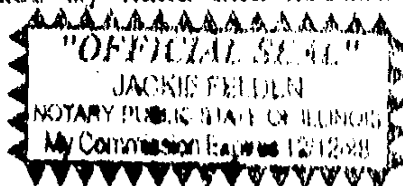 "OFFICIAL SEAL"
JACKIE FELDEN
NOTARY PUBLIC STATE OF ILLINOIS
My Commission Expires 12/12/98